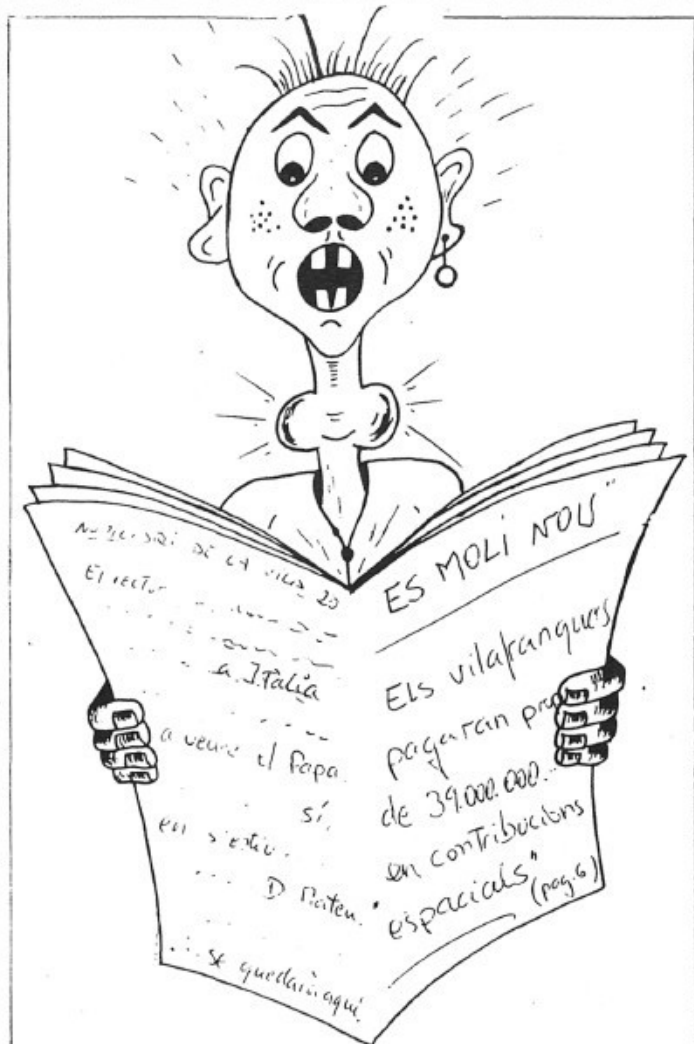 DE LA
El rector
a Italia
a veure el Papa.
sí,
en s'estiu.
D Mateu.
se quedarà aquí.
ES MOLÍ NOU"
Els vilafranquers
pagaran prop
de 39.000.000.-
en contribucions
"espacials"
(pag. 6)